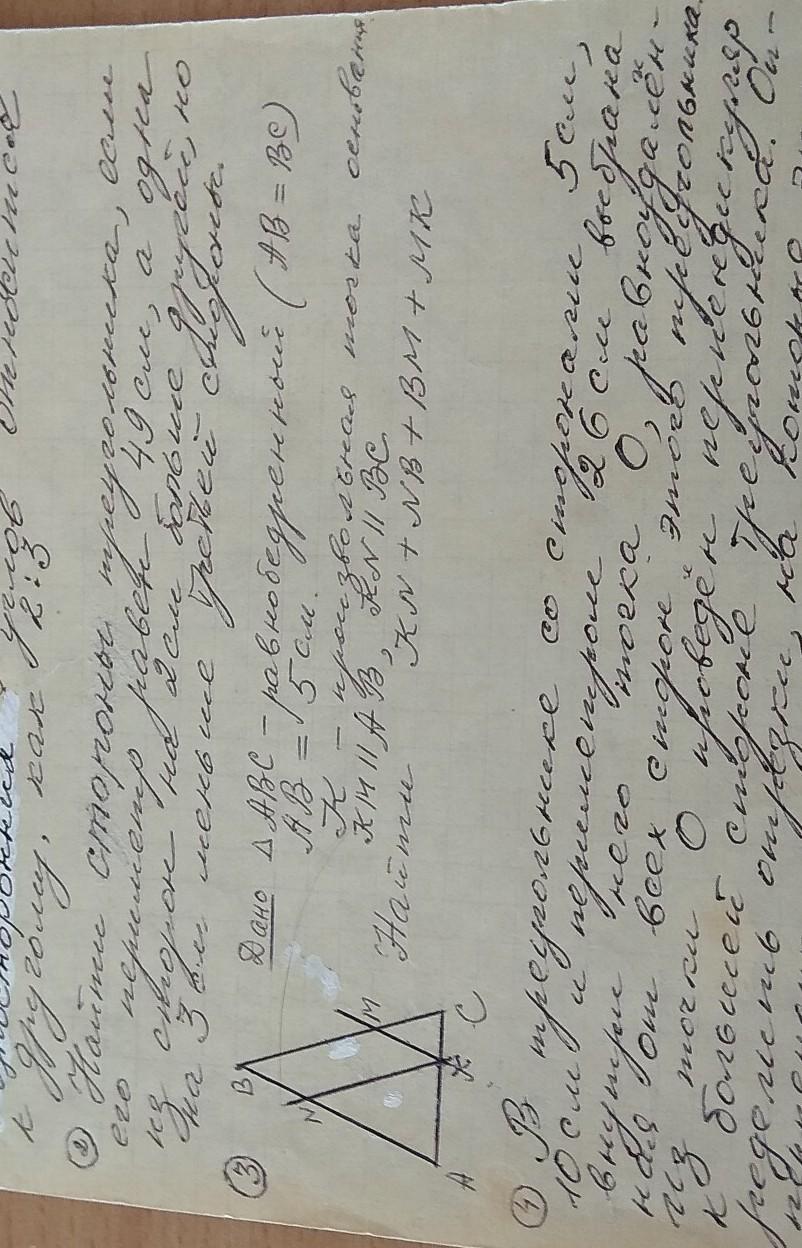 к другому, как 2:3 относится
② Найти стороны треугольника, если
его периметр равен 49 см, а одна
из сторон на 2 см больше другой, но
на 3 см меньше третьей стороны.
③ Дано △ ABC – равнобедренный (AB = BC)
AB = 5 см.
K – произвольная точка основания
KM || AB, KN || BC
Найти KN + NB + BM + MK
B
N
M
A
K
C
④ В треугольнике со сторонами 5 см,
10 см и периметром 26 см выбрана
внутри него точка O, равноудалён-
ная от всех сторон этого треугольника.
Из точки O проведён перпендикуляр
к большей стороне треугольника. Оп-
ределить отрезки, на которые